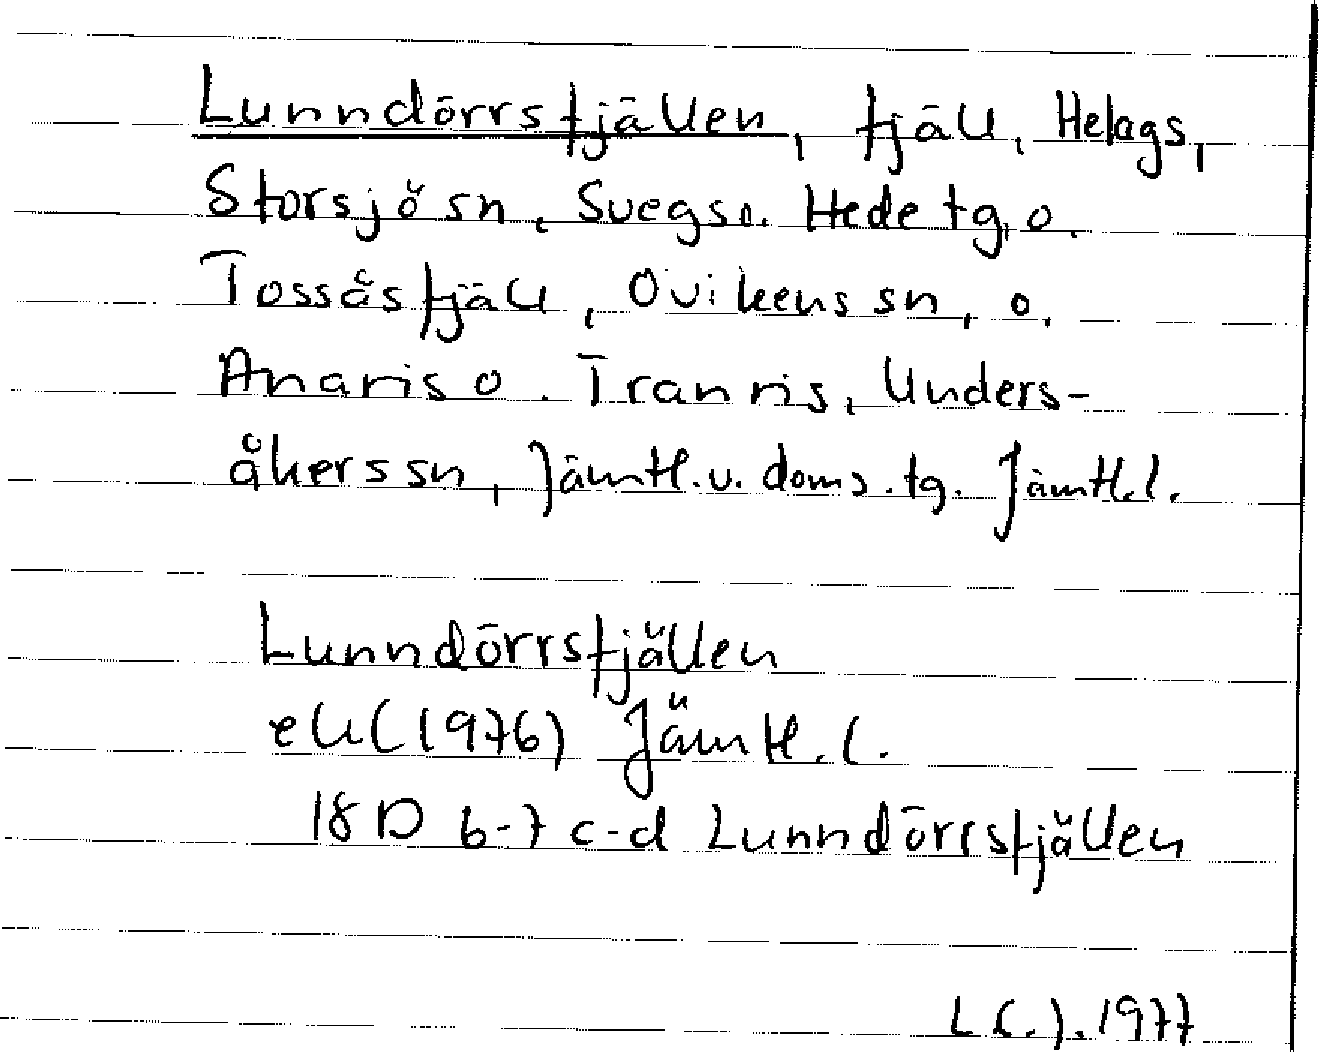 Lunndörrsfjällen, fjäll, Helags,
Storsjö sn, Svegs o. Hede tg, o.
Tossåsfjäll, Ovikens sn, o.
Anaris o. Tranris, Unders-
åkers sn, Jämtl. v. doms. tg. Jämtl. l.
Lunndörrsfjällen
ell (1976) Jämtl. l.
18D 6-7 c-d Lunndörrsfjällen
1977